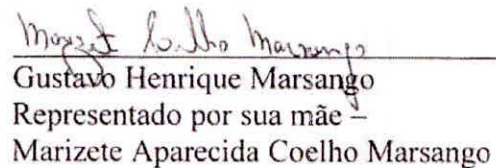 Marizete Coelho Marsango
Gustavo Henrique Marsango
Representado por sua mãe –
Marizete Aparecida Coelho Marsango